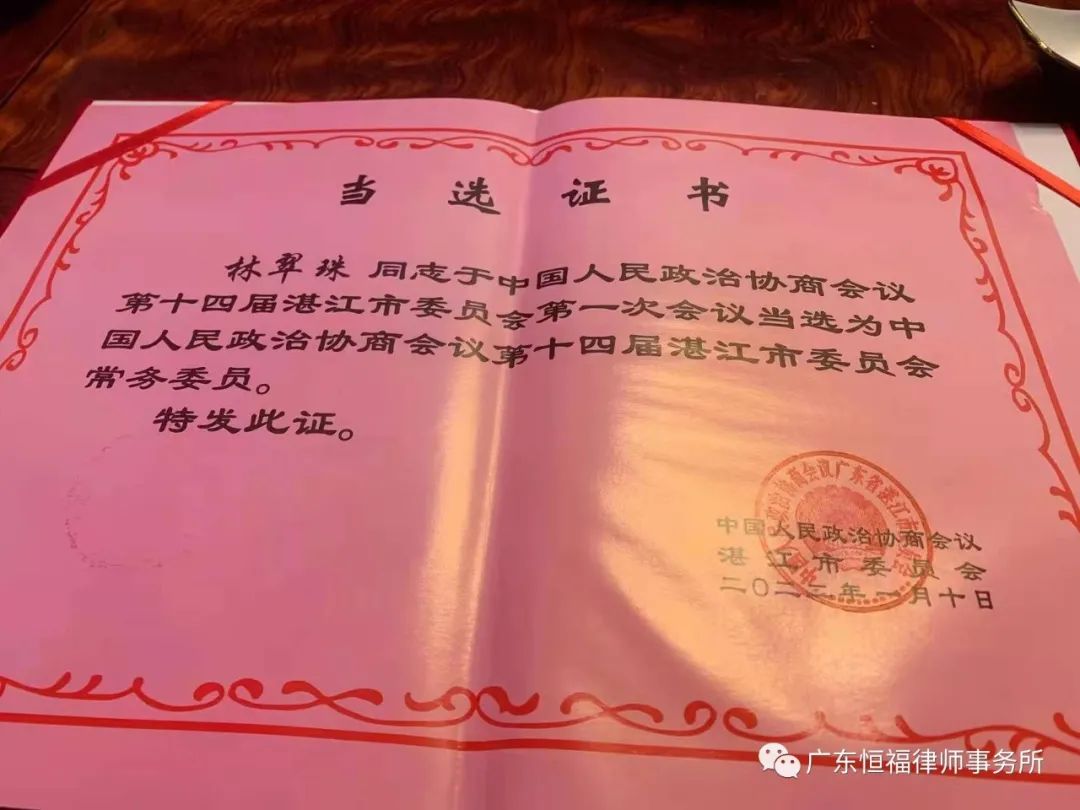 当选证书
林翠珠 同志于中国人民政治协商会议
第十四届湛江市委员会第一次会议当选为中
国人民政治协商会议第十四届湛江市委员会
常务委员。
特发此证。
中国人民政治协商会议
湛江市委员会
二〇二二年一月十日
广东恒福律师事务所